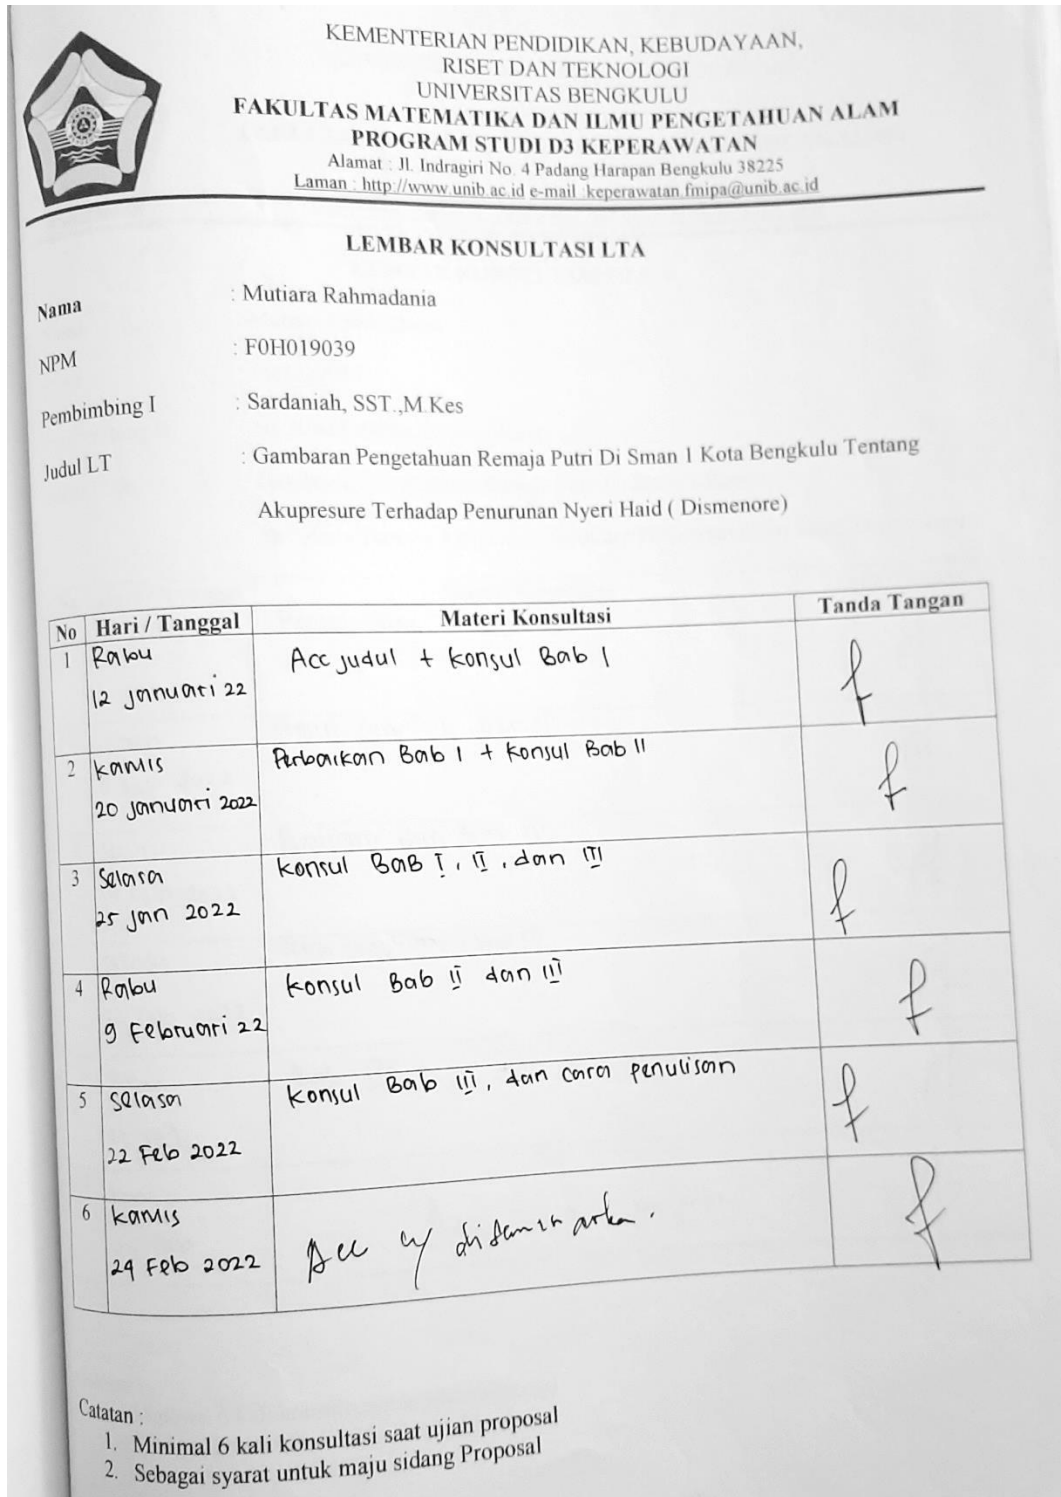 KEMENTERIAN PENDIDIKAN, KEBUDAYAAN,
RISET DAN TEKNOLOGI
UNIVERSITAS BENGKULU
FAKULTAS MATEMATIKA DAN ILMU PENGETAHUAN ALAM
PROGRAM STUDI D3 KEPERAWATAN
Alamat : Jl. Indragiri No. 4 Padang Harapan Bengkulu 38225
Laman : http://www.unib.ac.id e-mail :keperawatan.fmipa@unib.ac.id
LEMBAR KONSULTASI LTA
Nama : Mutiara Rahmadania
NPM : F0H019039
Pembimbing I : Sardaniah, SST.,M.Kes
Judul LT : Gambaran Pengetahuan Remaja Putri Di Sman 1 Kota Bengkulu Tentang
Akupresure Terhadap Penurunan Nyeri Haid ( Dismenore)
No Hari / Tanggal Materi Konsultasi Tanda Tangan
1 Rabu Acc judul + Konsul Bab I
12 januari 22
2 Kamis Perbaikan Bab I + Konsul Bab II
20 januari 2022
3 Selasa Konsul BAB I, II, dan III
25 jan 2022
4 Rabu Konsul Bab II dan III
9 Februari 22
5 Selasa Konsul Bab III, dan cara penulisan
22 Feb 2022
6 Kamis Acc u/ diseminarkan.
24 Feb 2022
Catatan :
1. Minimal 6 kali konsultasi saat ujian proposal
2. Sebagai syarat untuk maju sidang Proposal